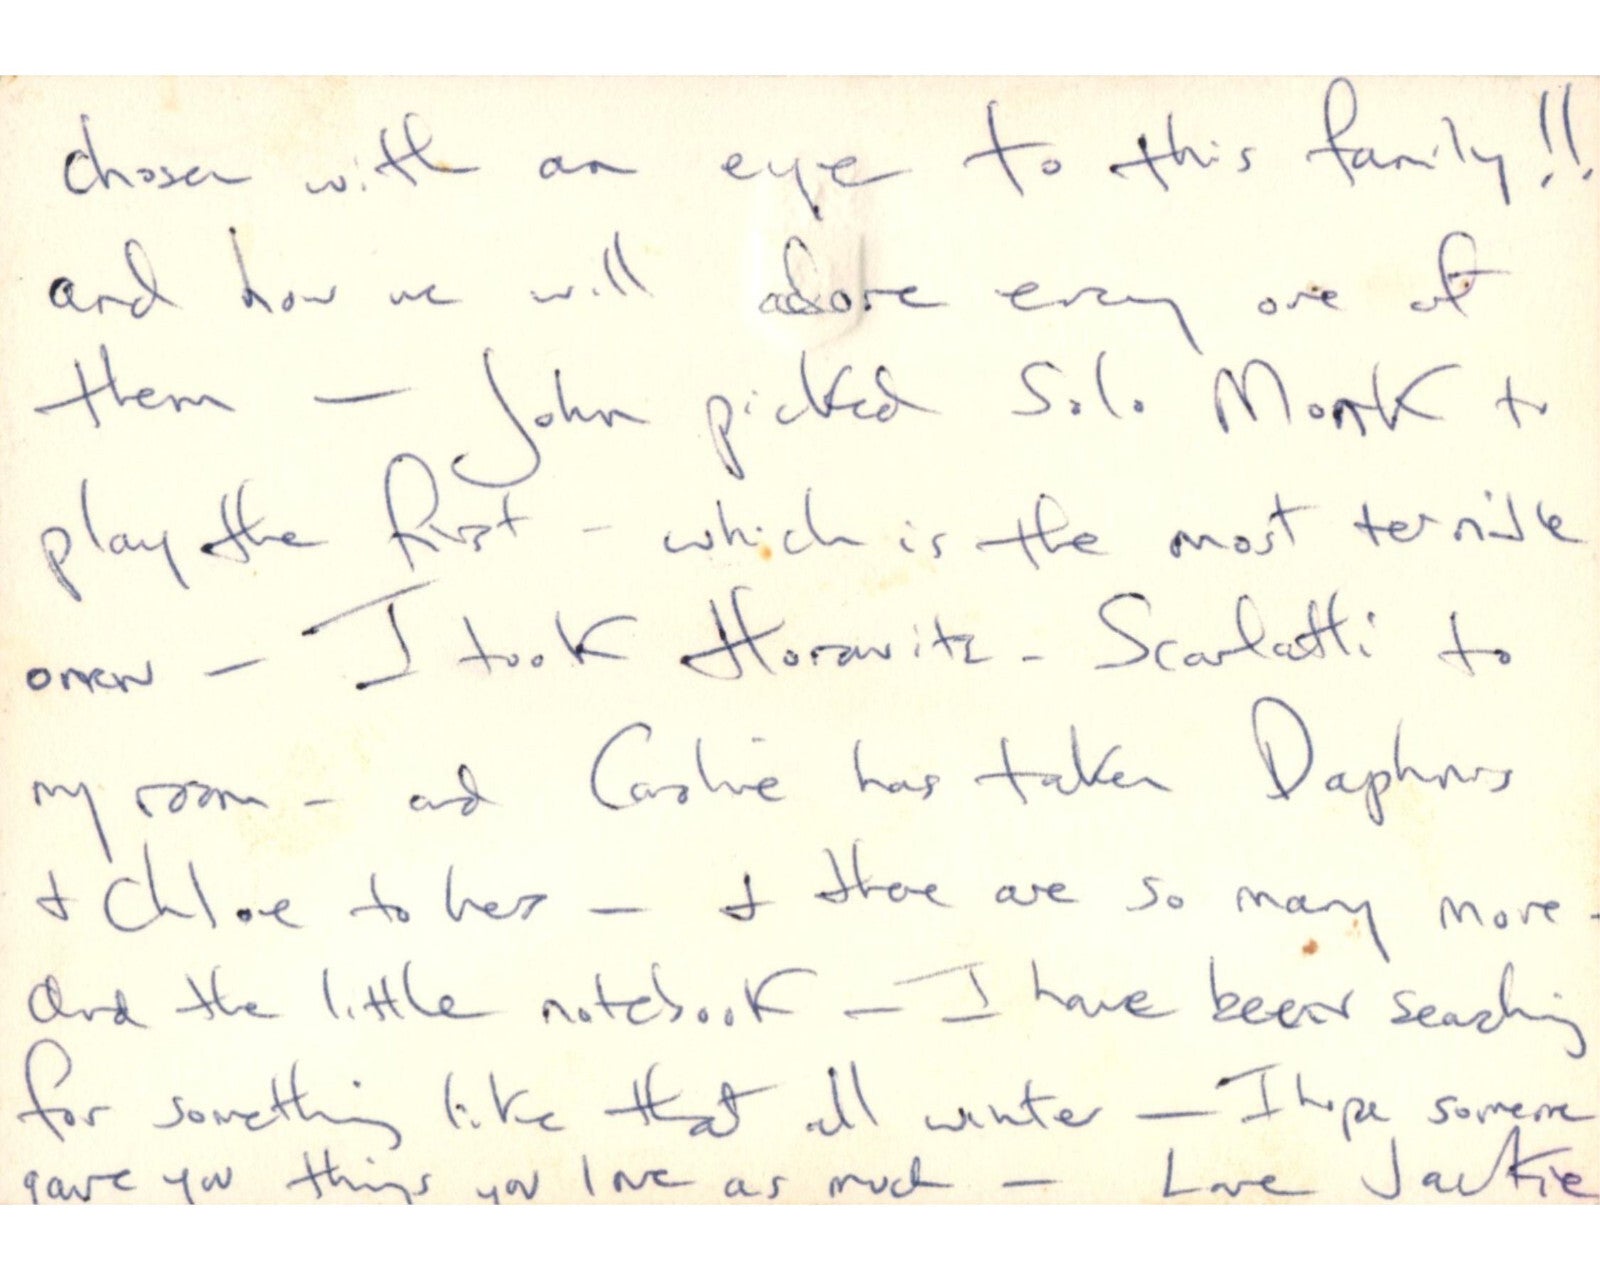 chosen with an eye to this family!!
and how we will adore every one of
them — John picked Solo Monk to
play the first - which is the most terrible
omen — I took Horowitz - Scarlatti to
my room - and Caroline has taken Daphnis
& Chloe to hers — & there are so many more -
And the little notebook — I have been searching
for something like that all winter — I hope someone
gave you things you love as much — Love Jackie